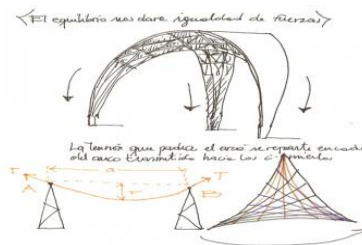 El equilibrio nos dara igualdad de fuerzas
La tensión que produce el arco se reparte en cada
del arco transmitida hacia los cimientos
T
a
T
A
B
F